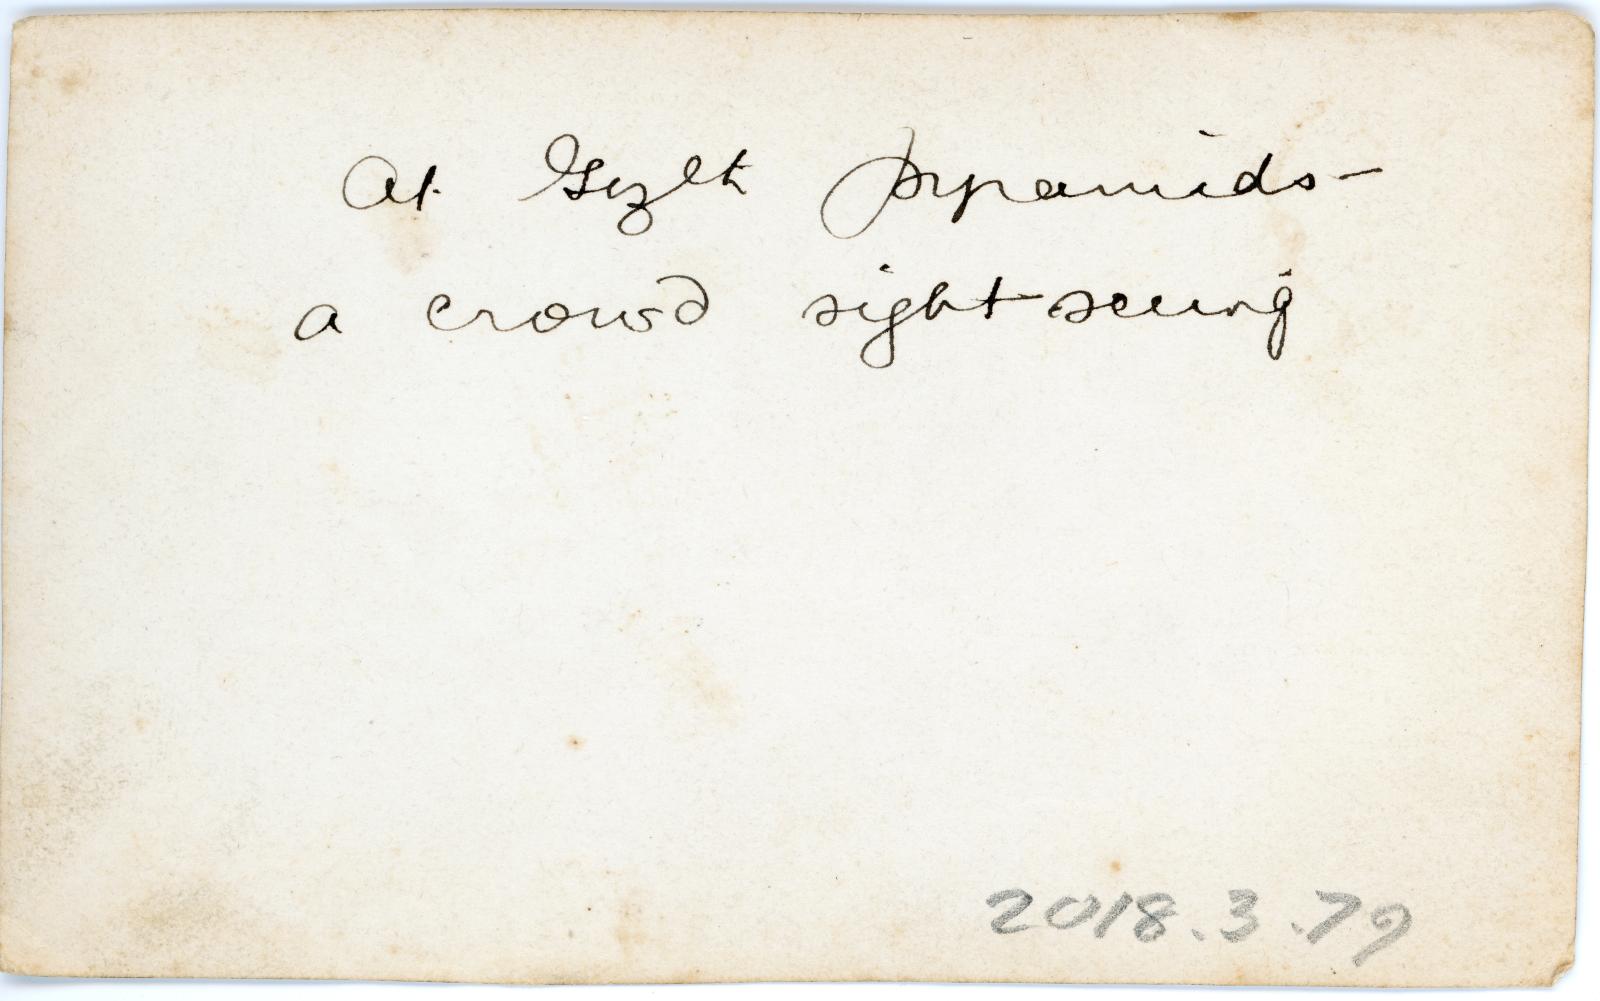 At Gizeh Pyramids-
a crowd sight-seeing
2018.3.79